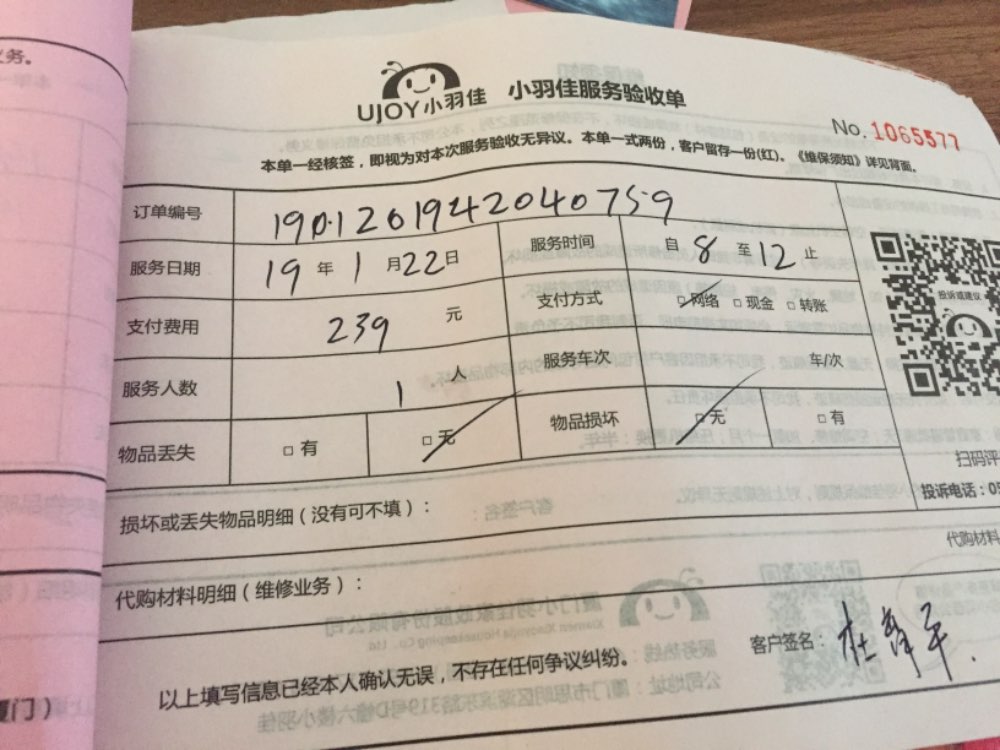 义务。
UJOY小羽佳 小羽佳服务验收单
No. 1065577
本单一经核签，即视为对本次服务验收无异议。本单一式两份，客户留存一份(红)。《维保须知》详见背面。
订单编号 1901201942040759
服务日期 19 年 1 月 22 日 服务时间 自 8 至 12 止
支付费用 239 元 支付方式 □网络 □现金 □转账
投诉或建议
服务人数 1 人 服务车次 车/次
物品丢失 □有 □无 物品损坏 □无 □有
扫码评
投诉电话：05
损坏或丢失物品明细（没有可不填）：
代购材料
代购材料明细（维修业务）：
客户签名：
以上填写信息已经本人确认无误，不存在任何争议纠纷。
厦门）